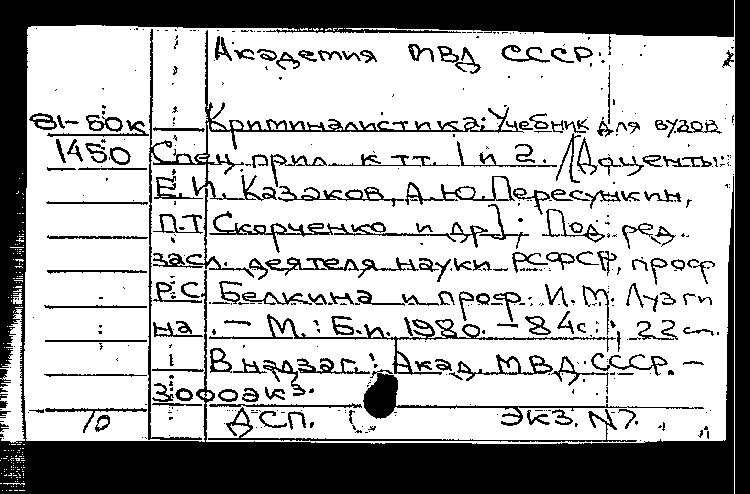 Академия МВД СССР.
81-50к Криминалистика: Учебник для вузов
1450 Спец. прил. к тт. 1 и 2. /[Доценты:
Е.И. Казаков, А.Ю. Пересункин,
П.Т. Скорченко и др]; Под ред.
засл. деятеля науки РСФСР, проф
Р.С. Белкина и проф. И.М. Лузги
на. – М.: Б.и. 1980. – 84с.; 22 см.
В надзаг.: Акад. МВД СССР. –
3000экз.
10 ДСП. ЭКЗ. N7.